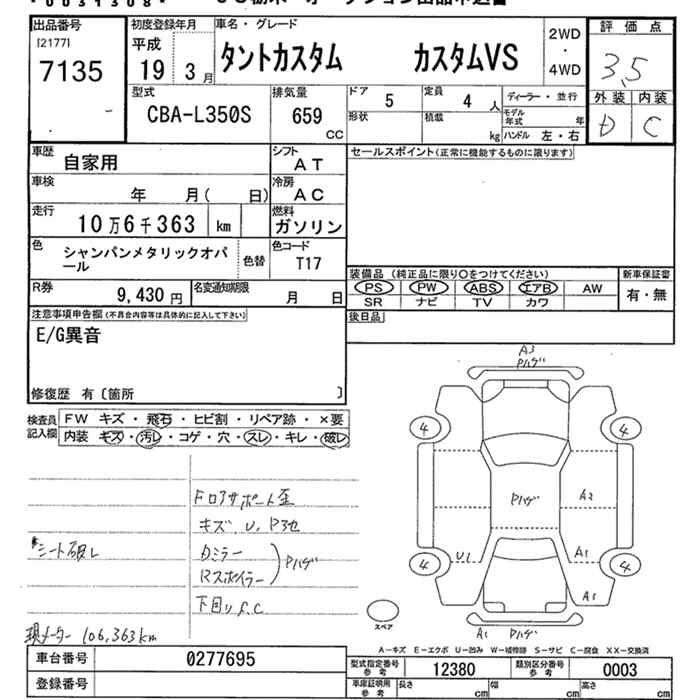 *0031308*
出品番号 初度登録年月 車名・グレード 2WD 評価点
[2177] 平成 ・
7135 19 3月 タントカスタム カスタムVS 4WD 3.5
型式 排気量 ドア 5 定員 4 人 ディーラー・並行 外装 内装
CBA-L350S 659 形状 積載 モデル年式 年 D C
CC kg ハンドル 左・右
車歴 自家用 シフト AT セールスポイント(正常に機能するものに限ります)
車検 年 月( 日) 冷房 AC
走行 10万6千363 km 燃料 ガソリン
色 シャンパンメタリックオパール 色替 色コード T17
装備品 (純正品に限り〇をつけてください) 新車保証書
R券 9,430 円 名変通知期限 月 日 PS PW ABS エアB AW 有・無
SR ナビ TV カワ
注意事項申告欄(不具合内容等は具体的に記入して下さい) 後日品
E/G異音
修復歴 有〔箇所 〕
検査員記入欄 FW キズ・飛石・ヒビ割・リペア跡・×要
内装 キズ・汚レ・コゲ・穴・スレ・キレ・破レ
A3
Pハゲ
4 4
Fロアサポート歪
Pハゲ A2
キズ、U、P3セ
シート破レ Dミラー
Rスポイラー Pハゲ
U1 A1
4 4
下回りS.C A1
スペア
現メーター 106,363km A1 Pハゲ
A-キズ E-エクボ U-凹み W-補修跡 S-サビ C-腐食 XX-交換済
車台番号 0277695 型式指定番号 参考 12380 類別区分番号 参考 0003
登録番号 車庫証明用 参考 長さ cm 幅 cm 高さ cm